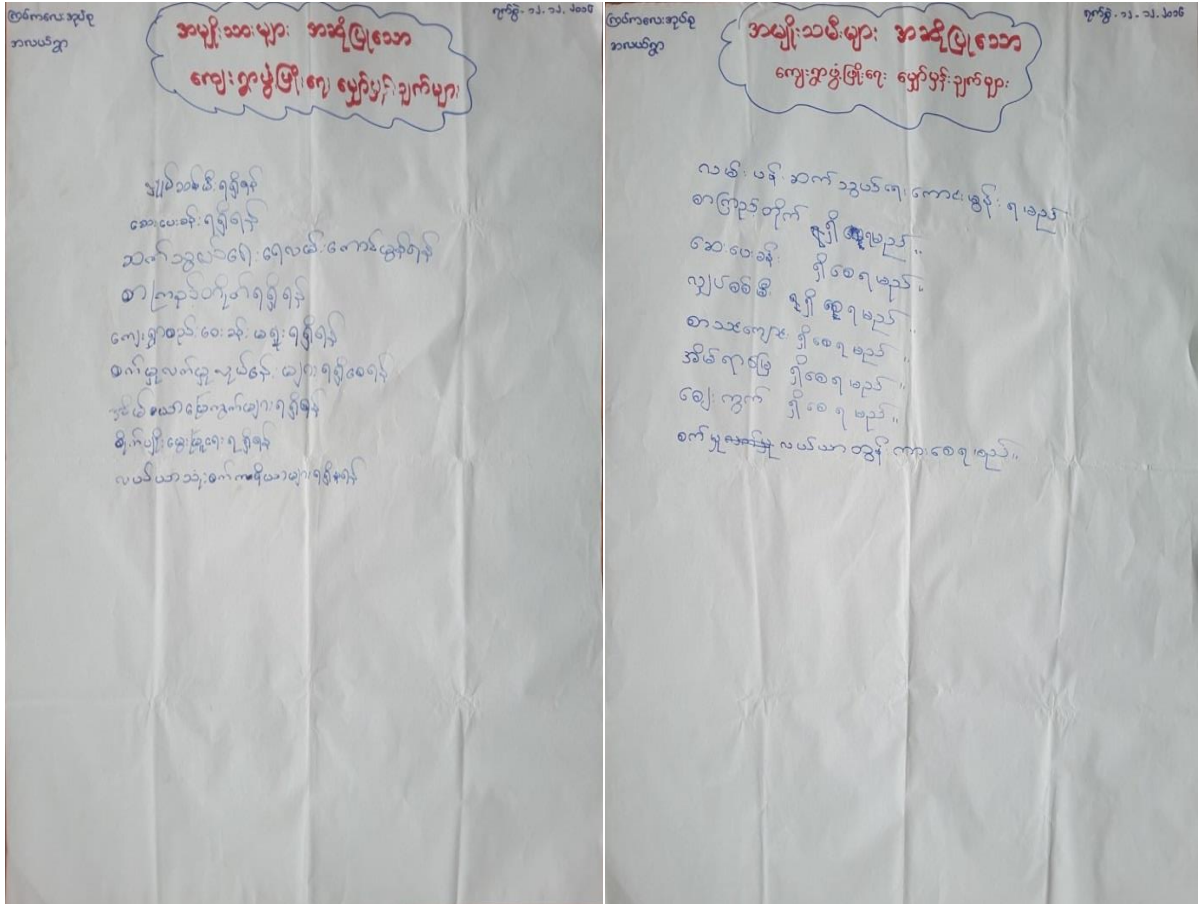 ကြပ်ကလေးအုပ်စု
အလယ်ရွာ
ရက်စွဲ - ၁၂.၁၂.၂၀၁၆
အမျိုးသားများ အဆိုပြုသော
ကျေးရွာဖွံ့ဖြိုးရေး မျှော်မှန်းချက်များ
လျှပ်စစ်မီး ရရှိရန်
ဆေးပေးခန်း ရရှိရန်
ဆက်သွယ်ရေး ရေလမ်းကောင်းမွန်ရန်
စာကြည့်တိုက်ရရှိရန်
ကျေးရွာစည်ဝေးခန်းမရုံးရရှိရန်
စက်မှုလက်မှုလုပ်ငန်းများရရှိစေရန်
အိမ်ယာမြေကွက်များရရှိရန်
စိုက်ပျိုးမွေးမြူရေးရရှိရန်
လယ်ယာသုံးစက်ကိရိယာများရရှိရန်
ကြပ်ကလေးအုပ်စု
အလယ်ရွာ
ရက်စွဲ - ၁၂.၁၂.၂၀၁၆
အမျိုးသမီးများ အဆိုပြုသော
ကျေးရွာဖွံ့ဖြိုးရေး မျှော်မှန်းချက်များ
လမ်းပန်းဆက်သွယ်ရေးကောင်းမွန်းရမည်
စာကြည့်တိုက် ရှိစေရမည်။
ဆေးပေးခန်း ရှိစေရမည်။
လျှပ်စစ်မီး ရှိစေရမည်။
စာသင်ကျောင်း ရှိစေရမည်။
အိမ်ရာမြေ ရှိစေရမည်။
ဈေးကွက် ရှိစေရမည်။
စက်မှုလယ်ယာထွန်းကားစေရမည်။